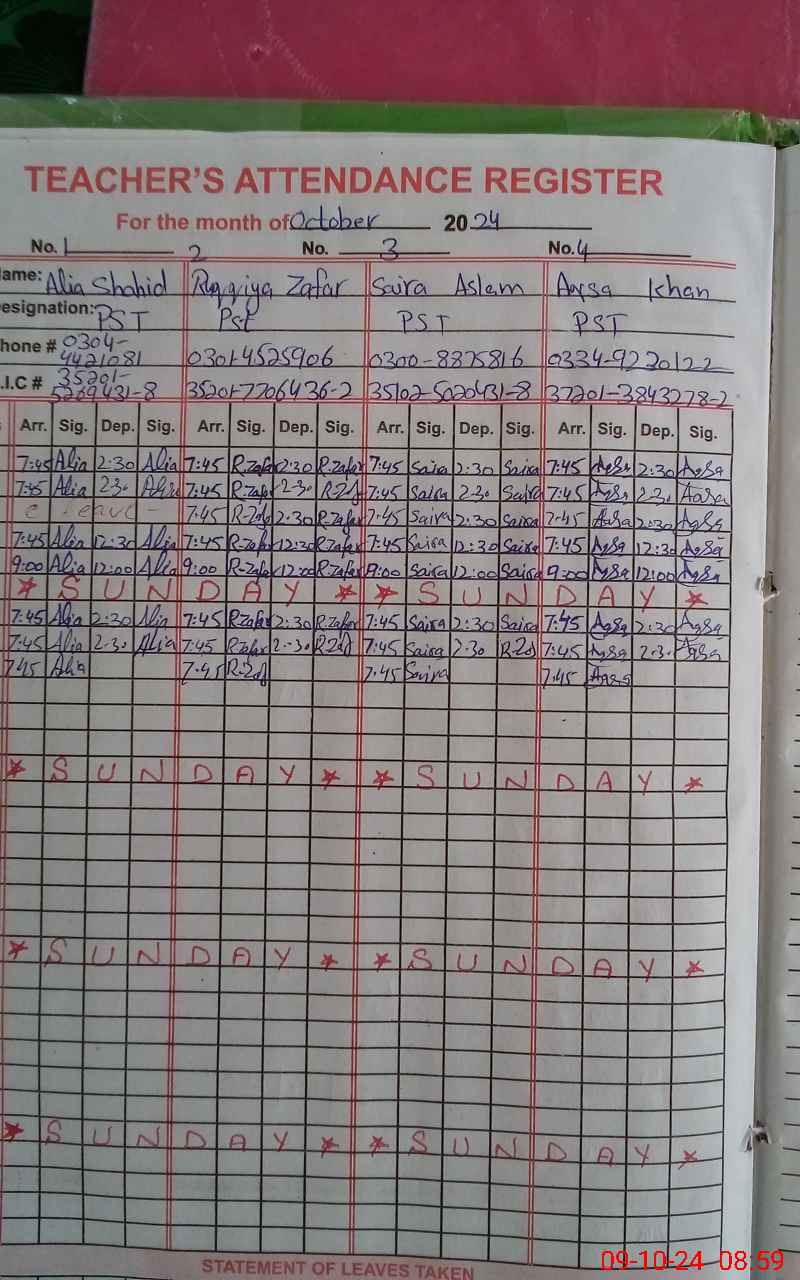 TEACHER'S ATTENDANCE REGISTER
For the month of October 2024
No. 1 2 No. 3 No. 4
ame: Alia Shahid Ruqqiya Zafar Saira Aslam Aqsa Khan
esignation: PST Pst PST PST
hone # 0304-4421081 0301-4525906 0300-8875816 0334-9230122
.I.C # 35201-5269431-8 35201-7706436-2 35102-5020431-8 37201-3843278-2
Arr. Sig. Dep. Sig. Arr. Sig. Dep. Sig. Arr. Sig. Dep. Sig. Arr. Sig. Dep. Sig.
7:45 Alia 2:30 Alia 7:45 R.Zafar 2:30 R.Zafar 7:45 Saira 2:30 Saira 7:45 Aqsa 2:30 Aqsa
7:45 Alia 2:30 Alia 7:45 R.Zafar 2:30 R-Zaf 7:45 Saira 2:30 Saira 7:45 Aqsa 2:30 Aqsa
C - leave - 7:45 R-Zaf 2:30 R.Zafar 7:45 Saira 2:30 Saira 7:45 Aqsa 2:30 Aqsa
7:45 Alia 12:30 Alia 7:45 R.Zafar 12:30 R.Zafar 7:45 Saira 12:30 Saira 7:45 Aqsa 12:30 Aqsa
9:00 Alia 12:00 Alia 9:00 R-Zafar 12:00 R.Zafar 9:00 Saira 12:00 Saira 9:00 Aqsa 12:00 Aqsa
* S U N D A Y * * S U N D A Y *
7:45 Alia 2:30 Alia 7:45 R.Zafar 2:30 R.Zafar 7:45 Saira 2:30 Saira 7:45 Aqsa 2:30 Aqsa
7:45 Alia 2:30 Alia 7:45 R.Zafar 2:30 R-Zaf 7:45 Saira 2:30 R-Zaf 7:45 Aqsa 2:30 Aqsa
7:45 Alia 7:45 R-Zaf 7:45 Saira 7:45 Aqsa
* S U N D A Y * * S U N D A Y *
* S U N D A Y * * S U N D A Y *
* S U N D A Y * * S U N D A Y *
STATEMENT OF LEAVES TAKEN
09-10-24 08:59